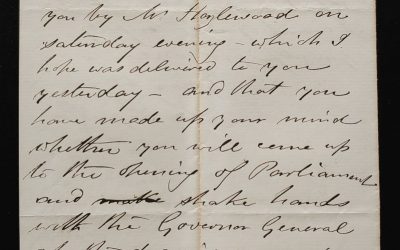 you by Mr Hazlewood on
saturday evening – which I
hope was delivered to you
yesterday – and that you
have made up your mind
whether you will come up
to the opening of Parliament
and make shake hands
with the Governor General